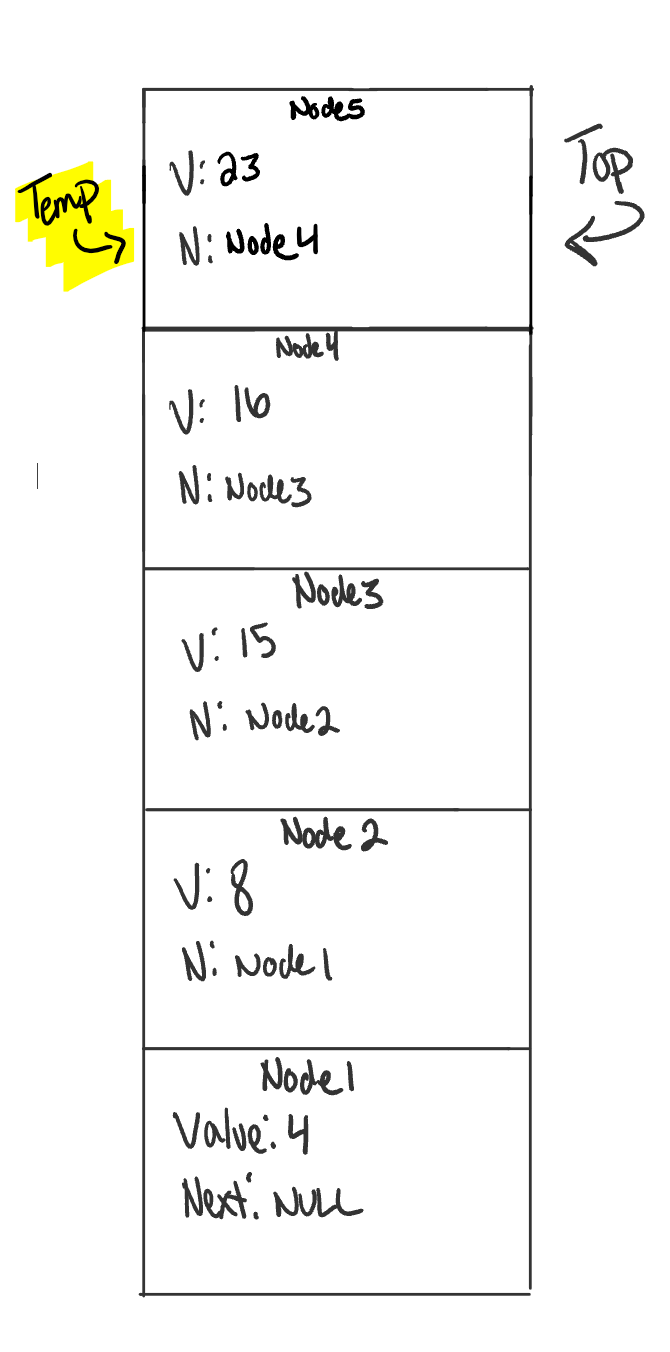 Node5
V: 23
Temp
Top
N: Node4
Node4
V: 16
N: Node3
Node3
V: 15
N: Node2
Node 2
V: 8
N: Node1
Node1
Value: 4
Next: NULL